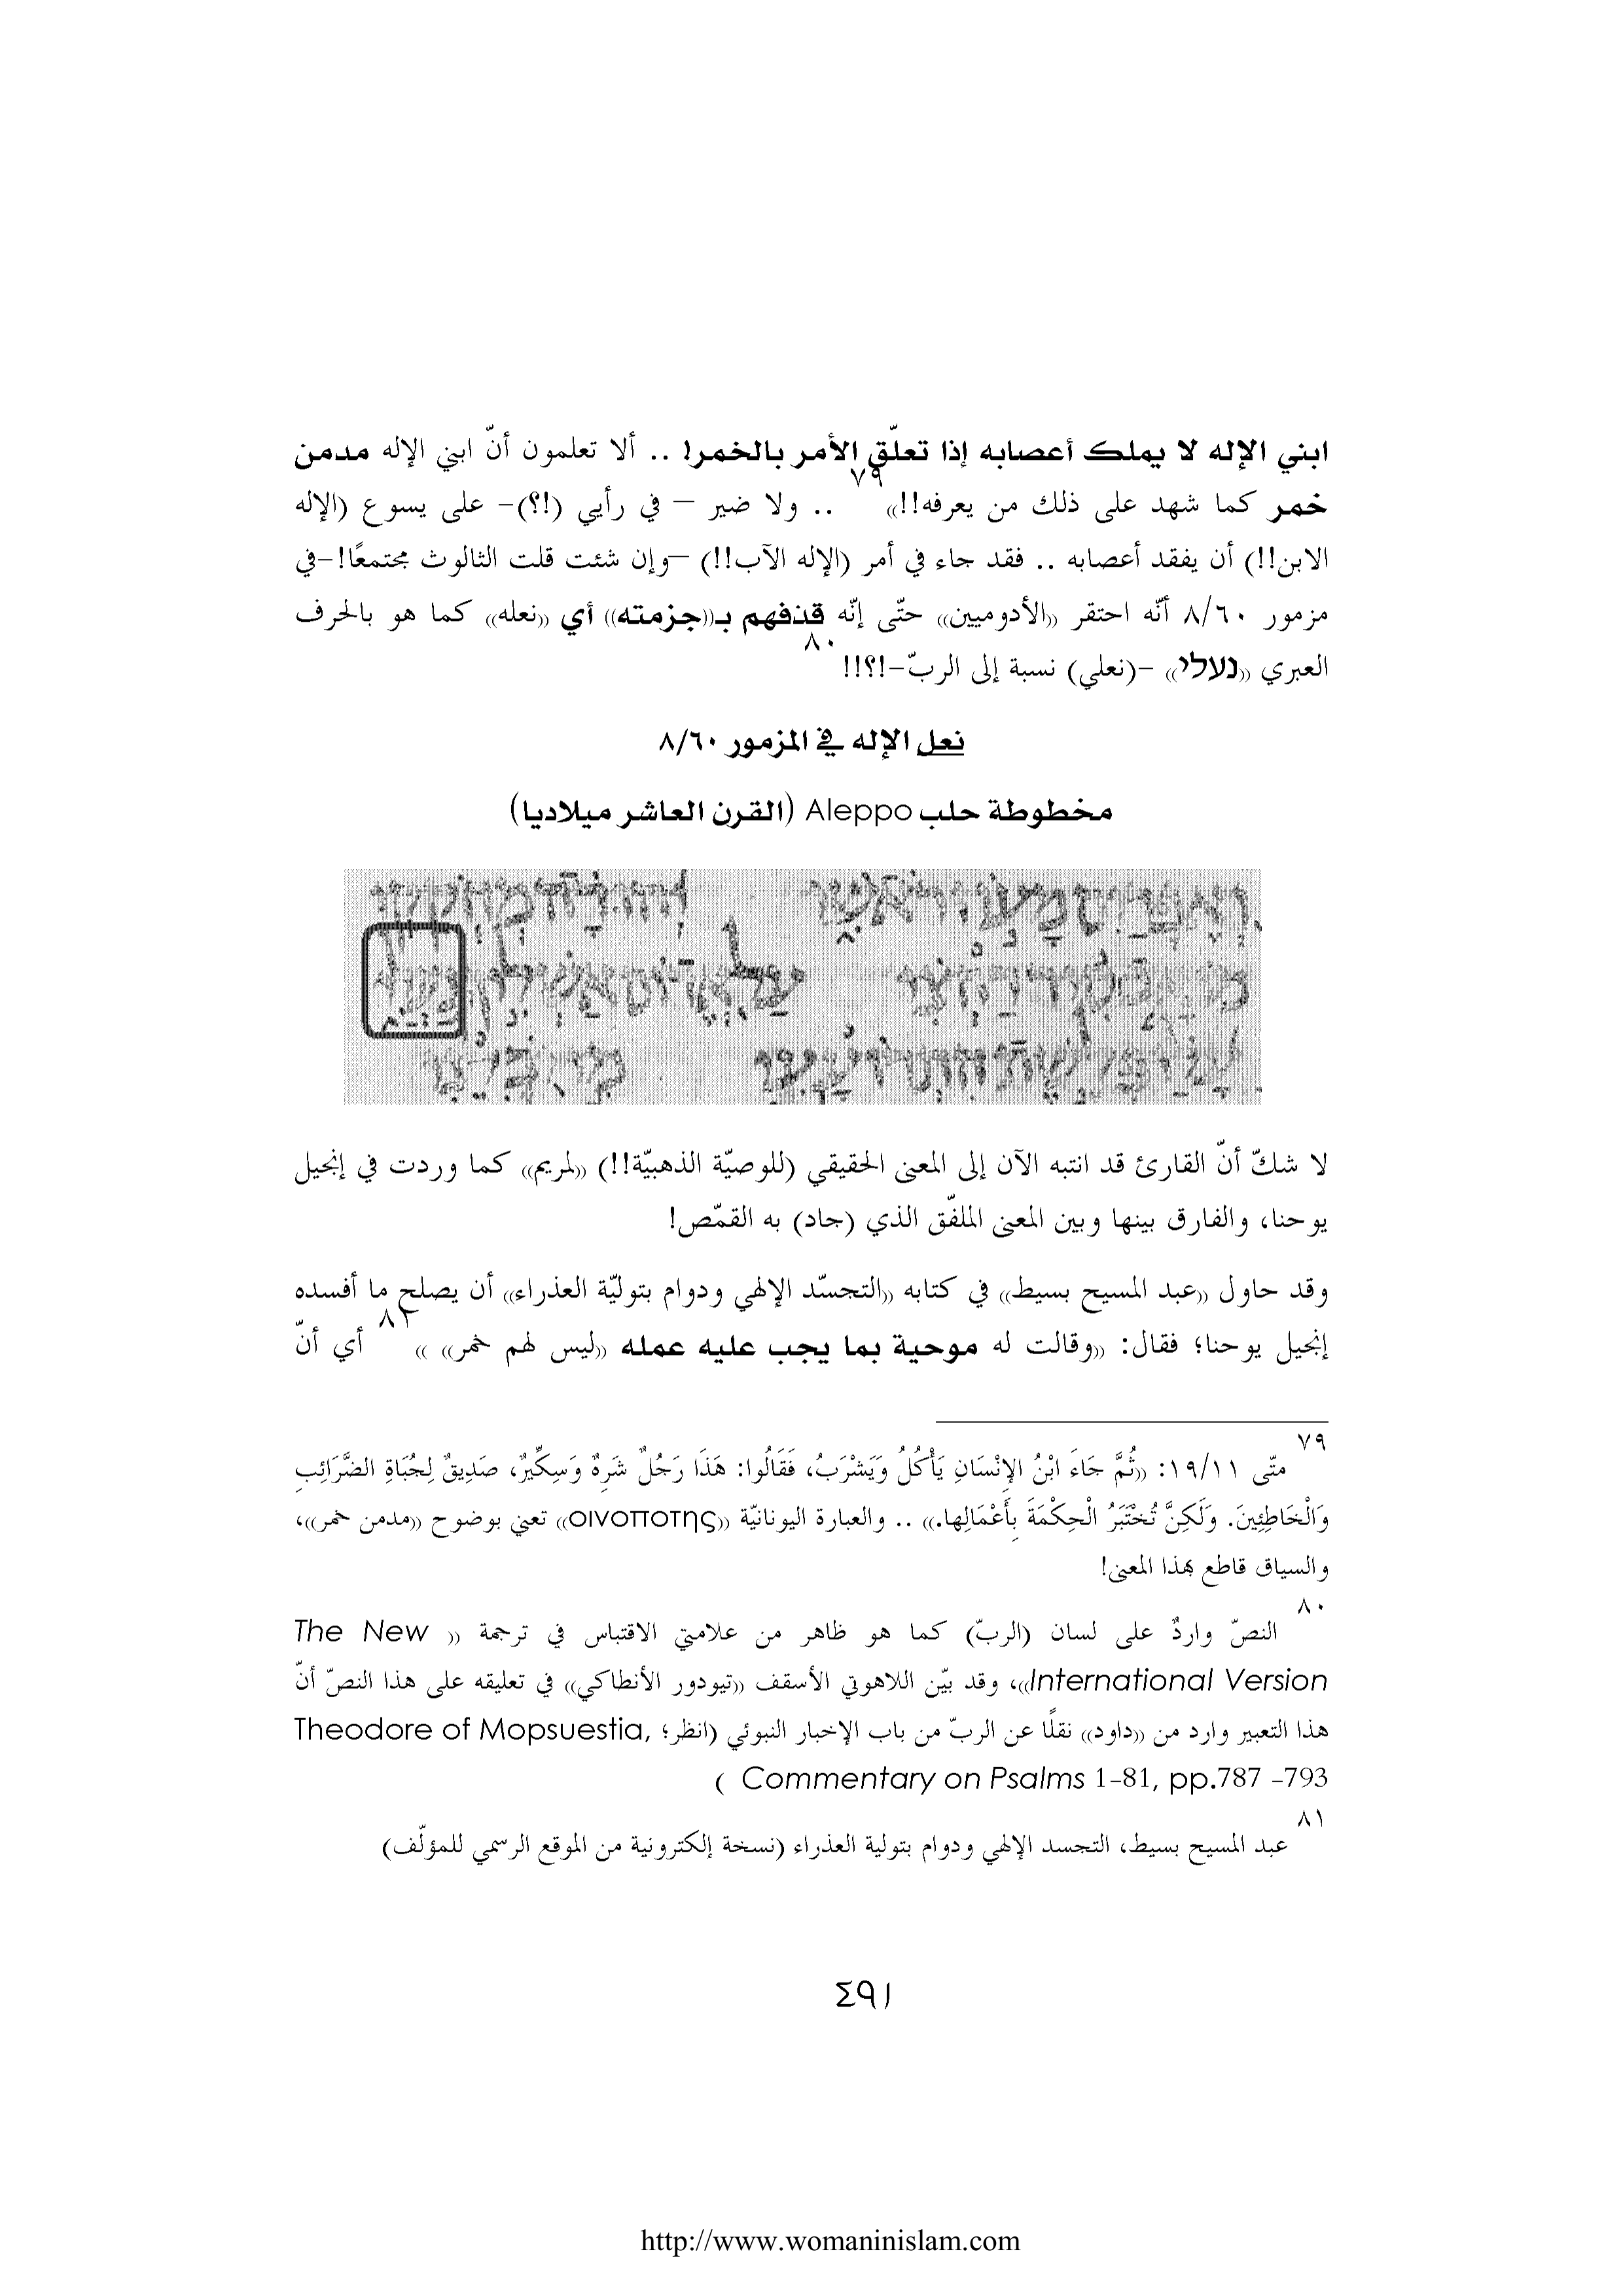 ابني الإله لا يملك أعصابه إذا تعلّق الأمر بالخمر! .. ألا تعلمون أنّ ابني الإله مدمن
خمر كما شهد على ذلك من يعرفه!!»٧٩ .. ولا ضير – في رأيي (!؟)– على يسوع (الإله
الابن!!) أن يفقد أعصابه .. فقد جاء في أمر (الإله الآب!!) –وإن شئت قلت الثالوث مجتمعًا!–في
مزمور ٨/٦٠ أنّه احتقر «الأدوميين» حتّى إنّه قذفهم بـ«جزمته» أي «نعله» كما هو بالحرف
العبري «נעלי» –(نعلي) نسبة إلى الربّ–!؟!!٨٠
نعل الإله في المزمور ٨/٦٠
مخطوطة حلب Aleppo (القرن العاشر ميلاديا)
لا شكّ أنّ القارئ قد انتبه الآن إلى المعنى الحقيقي (للوصيّة الذهبيّة!!) «لمريم» كما وردت في إنجيل
يوحنا، والفارق بينها وبين المعنى الملفّق الذي (جاد) به القمّص!
وقد حاول «عبد المسيح بسيط» في كتابه «التجسّد الإلهي ودوام بتوليّة العذراء» أن يصلح ما أفسده
إنجيل يوحنا؛ فقال: «وقالت له موحية بما يجب عليه عمله «ليس لهم خمر» »٨١ أي أنّ
٧٩ متّى ١٩/١١: «ثُمَّ جَاءَ ابْنُ الإِنْسَانِ يَأْكُلُ وَيَشْرَبُ، فَقَالُوا: هَذَا رَجُلٌ شَرِهٌ وَسِكِّيرٌ، صَدِيقٌ لِجُبَاةِ الضَّرَائِبِ
وَالْخَاطِئِينَ. وَلَكِنَّ تُخْتَبَرُ الْحِكْمَةَ بِأَعْمَالِهِا.» .. والعبارة اليونانيّة «οινοποτης» تعني بوضوح «مدمن خمر»،
والسياق قاطع بهذا المعنى!
٨٠ النصّ واردٌ على لسان (الربّ) كما هو ظاهر من علامتي الاقتباس في ترجمة « The New
International Version»، وقد بيّن اللاهوتي الأسقف «تيودور الأنطاكي» في تعليقه على هذا النصّ أنّ
هذا التعبير وارد من «داود» نقلًا عن الربّ من باب الإخبار النبوئي (انظر؛ Theodore of Mopsuestia,
Commentary on Psalms 1-81, pp.787 -793 )
٨١ عبد المسيح بسيط، التجسد الإلهي ودوام بتولية العذراء (نسخة إلكترونية من الموقع الرسمي للمؤلّف)
٤٩١
http://www.womaninislam.com